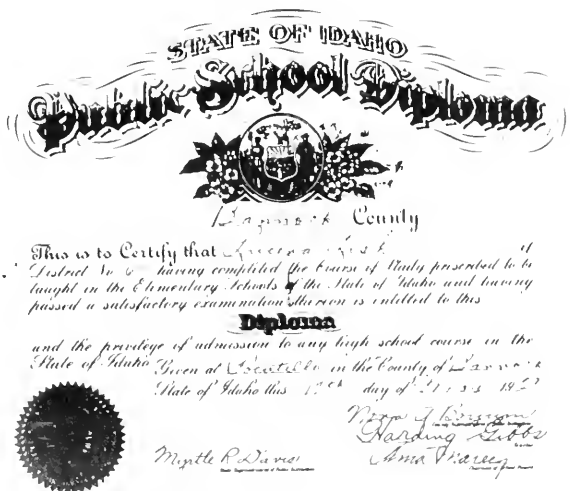 STATE OF IDAHO
Public School Diploma
Bannock County
This is to Certify that of
District No 6 having completed the Course of Study prescribed to be
taught in the Elementary Schools of the State of Idaho and having
passed a satisfactory examination thereon is entitled to this
Diploma
and the privilege of admission to any high school course in the
State of Idaho Given at Pocatello in the County of Bannock
State of Idaho this day of 19
Harding Gibbs
Myrtle R. Davis